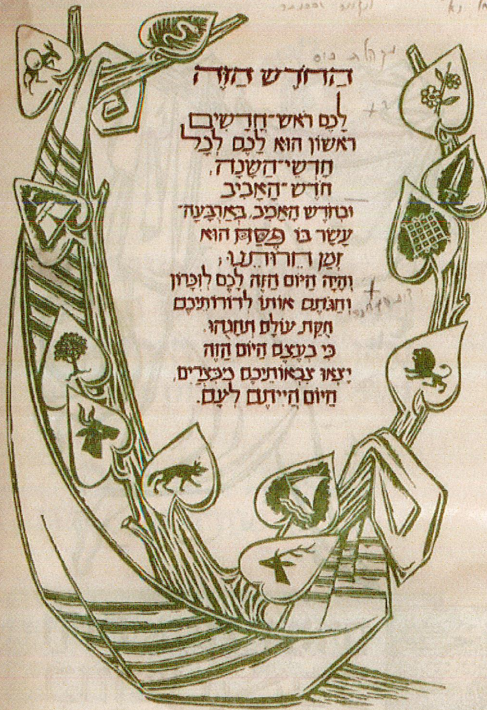 הַחֹדֶשׁ הַזֶּה
לָכֶם רֹאשׁ־חֳדָשִׁים
רִאשׁוֹן הוּא לָכֶם לְכָל
חָדְשֵׁי־הַשָּׁנָה,
חֹדֶשׁ־הָאָבִיב
וּבְחֹדֶשׁ הָאָבִיב, בְּאַרְבָּעָה־
עָשָׂר בּוֹ פֶּסַח הוּא
זְמַן חֵרוּתֵנוּ;
וְהָיָה הַיּוֹם הַזֶּה לָכֶם לְזִכָּרוֹן
וְחַגֹּתֶם אוֹתוֹ לְדוֹרוֹתֵיכֶם
חֻקַּת עוֹלָם תְּחָגֻּהוּ.
כִּי בְּעֶצֶם הַיּוֹם הַזֶּה
יָצְאוּ צִבְאוֹתֵיכֶם מִמִּצְרַיִם,
הַיּוֹם הֱיִיתֶם לְעָם.